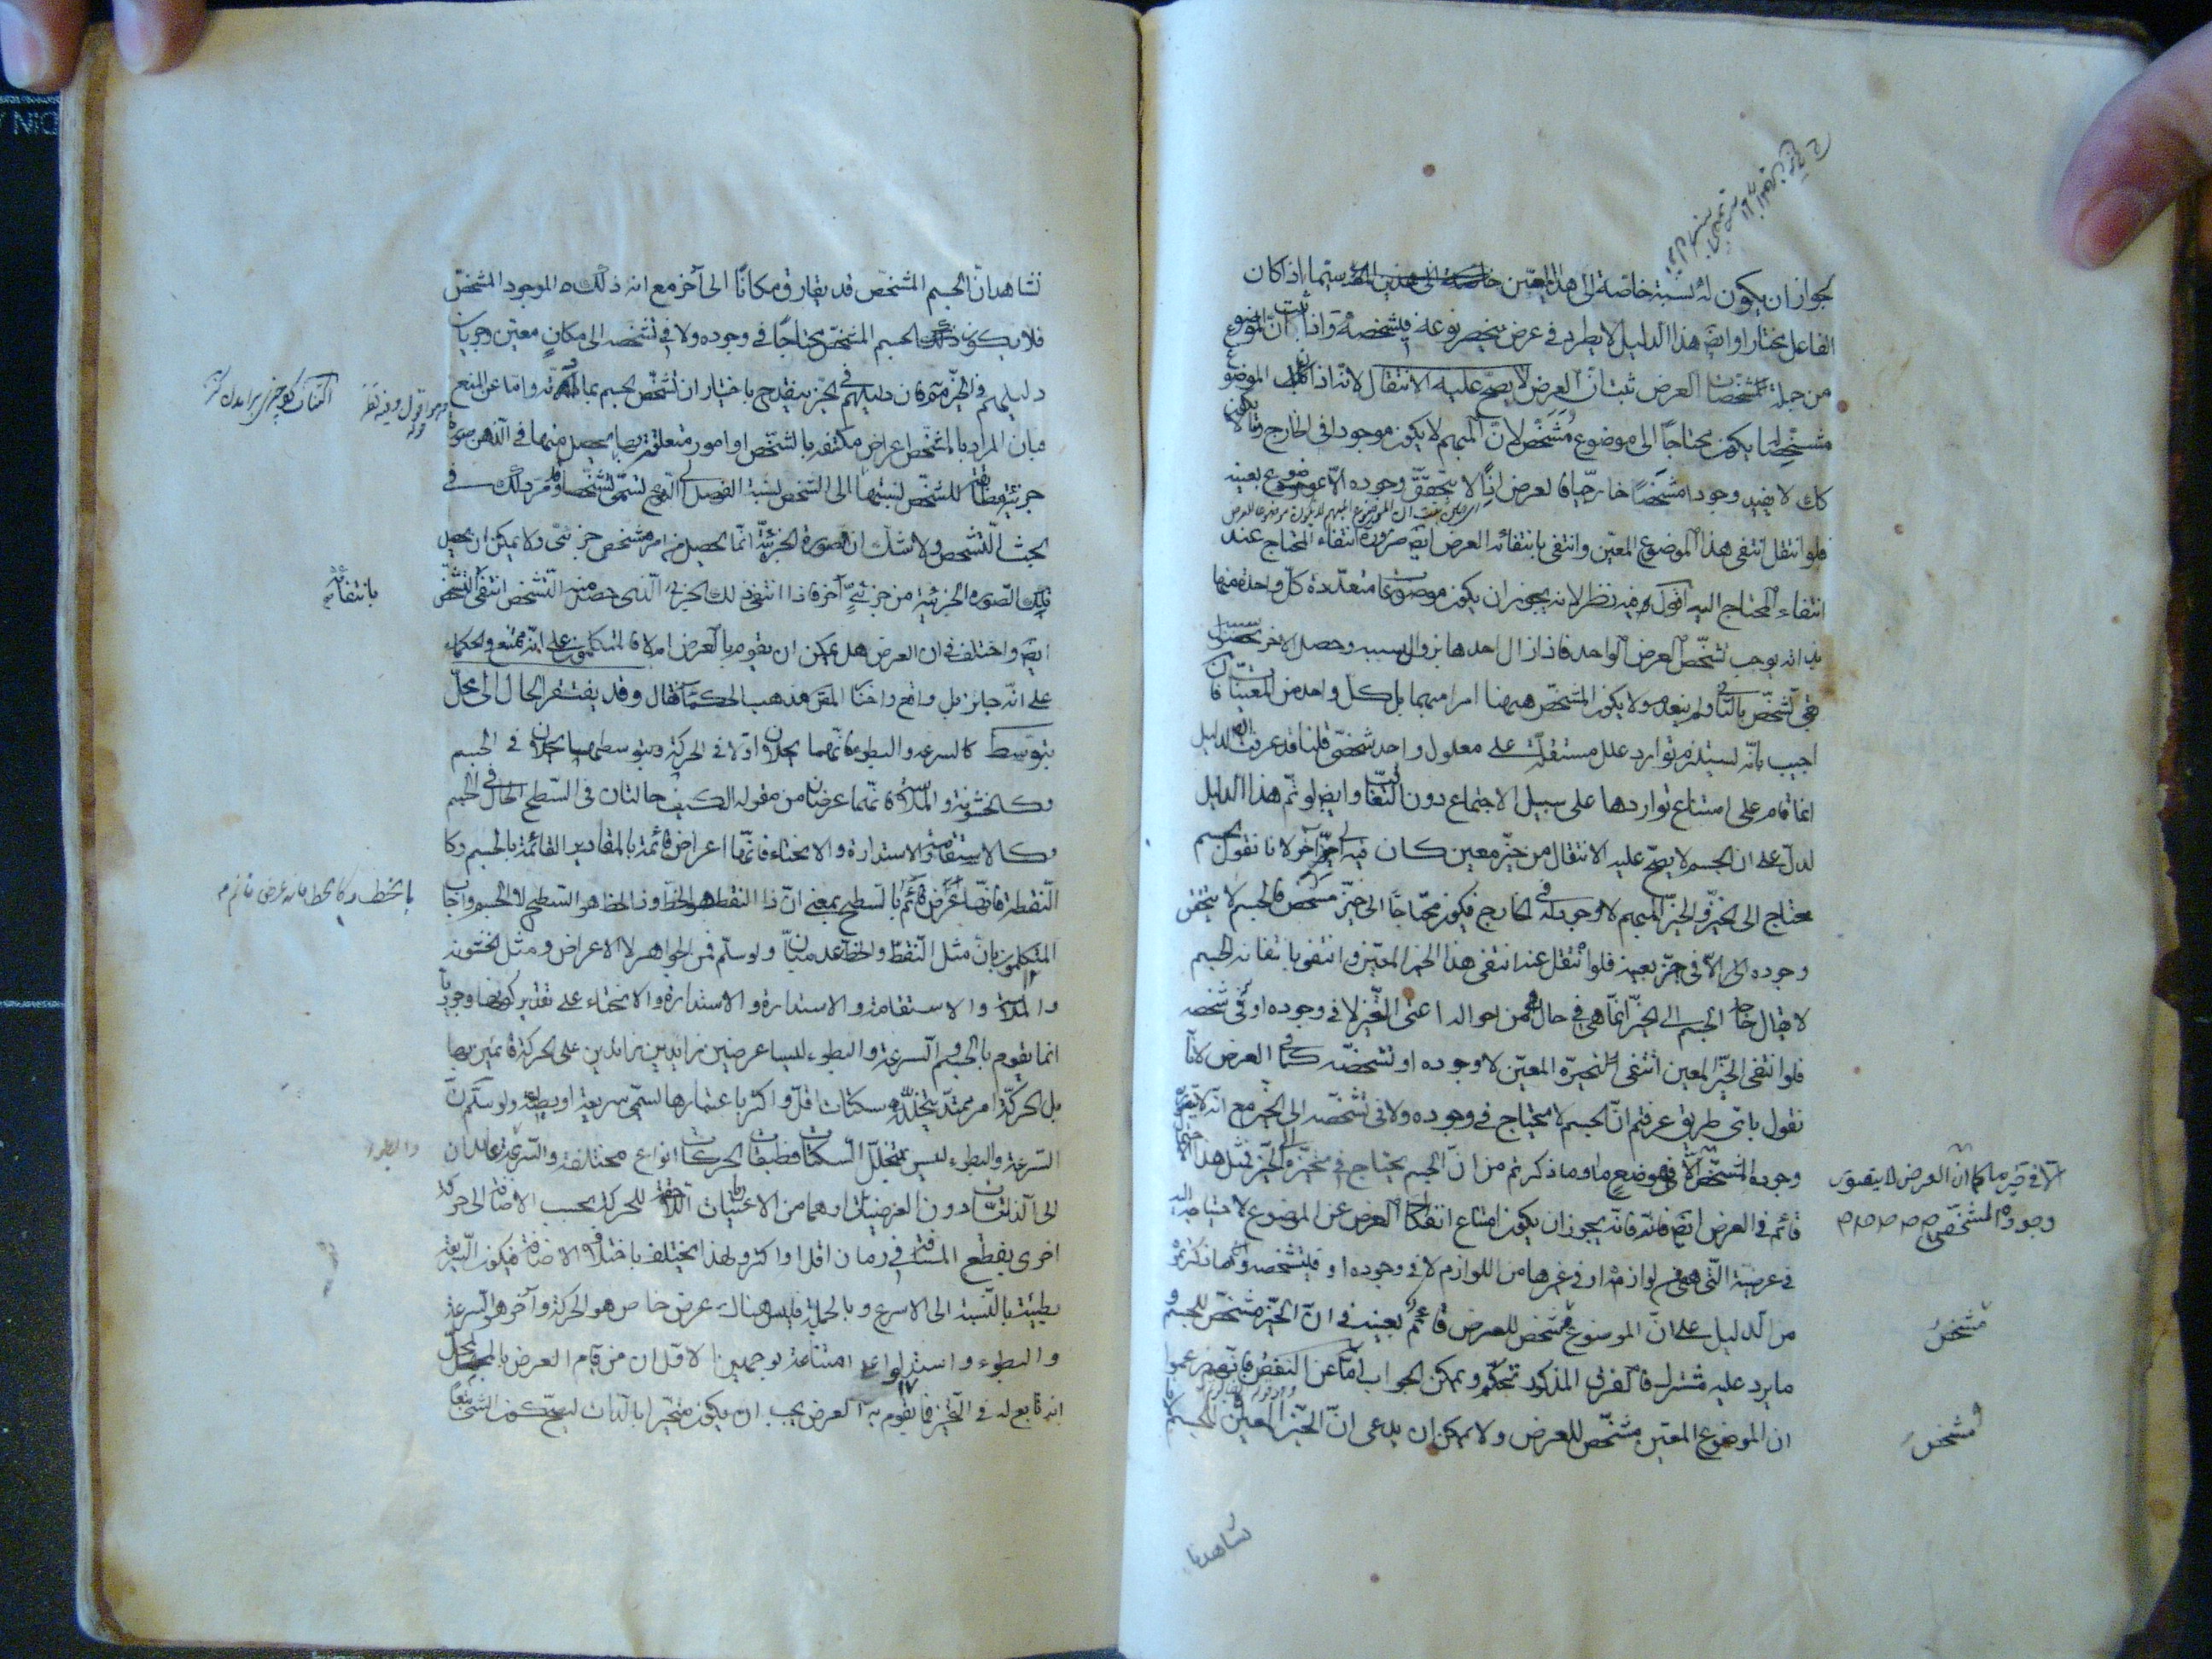 لجواز ان يكون له نسبة خاصة الى هذا المعين سيما اذا كان
الفاعل مختارا وايضا هذا الدليل لا يطرد في عرض ينحصر نوعه في شخصه واذا ثبت ان الموضوع
من جملة مشخصات العرض ثبت ان العرض لا يصح عليه الانتقال لانه اذا كان الموضوع
مشخصا يكون محتاجا الى موضوع مشخص لان المبهم لا يكون موجودا في الخارج وما لا يكون
كك لا يفيد وجودا مشخصا خارجيا فالعرض اذا لا يتحقق وجوده الا بموضوع بعينه
فلو انتقل انتفى هذا الموضوع المعين وانتفى بانتفائه العرض ايضا ضرورة انتفاء المحتاج عند
انتفاء المحتاج اليه اقول وفيه نظر لانه يجوز ان يكون موضوعات متعددة كل واحدة منها
بحيث انه يوجب تشخص العرض الواحد فاذا زال احدها بزوال سببه وحصل الآخر
بقي تشخص ولم ينعدم ولا يكون المشخص ههنا امرا مبهما بل كل واحد من المعينات فان
اجيب بانه يستلزم توارد علل مستقلة على معلول واحد شخصي قلنا قد عرفت ان الدليل
انما قام على امتناع تواردها على سبيل الاجتماع دون التعاقب وايضا لو تم هذا الدليل
لدل على ان الجسم لا يصح عليه الانتقال من حيز معين كان فيه الى حيز آخر لانا نقول الجسم
محتاج الى الحيز والحيز المبهم لا وجود له في الخارج فيكون محتاجا الى حيز مشخص فالجسم لا يتحقق
وجوده الا في حيز بعينه فلو انتقل عنه انتفى هذا الحيز المعين وانتفى بانتفائه الجسم
لا يقال حاجة الجسم الى الحيز انما هي في حال من احواله اعني التحيز لا في وجوده او في تشخصه
فلو انتفى الحيز المعين انتفى تحيزه المعين لا وجوده او تشخصه كما في العرض لانا
نقول باي طريق عرفتم ان الجسم لا يحتاج في وجوده ولا في تشخصه الى الحيز مع انه لا يتقرر
وجوده المشخص الا في موضع ما وما ذكرتم من ان الجسم يحتاج في تحيزه الى الحيز فمثل هذا
قائم في العرض ايضا فانه يجوز ان يكون امتناع انفكاك العرض عن الموضوع لاحتياجه اليه
في عرضيته التي هي من لوازمه او في غيرها من اللوازم لا في وجوده او في تشخصه وما ذكرتموه
من الدليل على ان الموضوع مشخص للعرض قائم بعينه في ان الحيز مشخص للجسم و
ما يرد عليه مشترك فالفرق المذكور تحكم ويمكن الجواب اما عن النقض فانهم زعموا
ان الموضوع المعين مشخص للعرض ولا يمكن ان يدعى ان الحيز المعين للجسم
الا في حيز ما كما ان العرض لا يتقرر
وجوده المشخص
مشخص
مشخص
نشاهد ان الجسم المشخص قد يفارق مكانا الى آخر مع انه ذلك الموجود المشخص
فلا يكون الجسم المشخص محتاجا في وجوده ولا في تشخصه الى مكان معين وجريان
دليلهم في الحيز باختيار ان تشخص الجسم واما عن المنع
فبان المراد بالمشخص اعراض مكتنفة بالشخص او امور متعلقة بها يحصل منها في الذهن صورة
جزئية للشخص نسبتها الى الشخص نسبة الفصل الى النوع تسمى تشخصا وقد مر ذلك في
بحث التشخص ولا شك ان الصورة الجزئية انما تحصل من امر مشخص جزئي ولا يمكن ان يحصل
تلك الصورة الجزئية من جزئي آخر فاذا انتفى ذلك الجزئي الذي حصل منه التشخص انتفى التشخص
ايضا واختلف في ان العرض هل يمكن ان يقوم بالعرض ام لا فالمتكلمون على انه ممتنع والحكماء
على انه جائز بل واقع واختار المص مذهب الحكماء فقال وقد يفتقر الحال الى محل
بتوسط كالسرعة والبطوء فانهما يحلان اولا في الحركة وبتوسطها يحلان في الجسم
وكالخشونة والملاسة فانهما عرضان من مقولة الكيف حالتان في السطح الحال في الجسم
وكالاستقامة والاستدارة والانحناء فانها اعراض قائمة بالمقادير القائمة بالجسم وكا
لنقطة فانها عرض قائم بالسطح بمعنى ان ذا النقطة هو الخط وذا الخط هو السطح لا الجسم واجاب
المتكلمون بان مثل النقطة والخط عدميان ولو سلم فمن الجواهر لا الاعراض ومثل الخشونة
والملاسة والاستقامة والاستدارة والاستدارة والانحناء على تقدير كونها وجودية
انما يقوم بالجسم والسرعة والبطوء ليسا عرضين زايدين على الحركة قائمين بها
بل الحركة امر ممتد يتخلله سكنات اقل او اكثر باعتبارها تسمى سريعة او بطيئة ولو سلم ان
السرعة والبطوء ليس بتخلل السكنات فطبقات الحركات انواع مختلفة والسرعة عائدان
الى الذاتيات دون العرضيات او هما من الاعتبارات اللاحقة للحركة بحسب الاضافة الى حركة
اخرى يقطع المسافة في زمان اقل او اكثر ولهذا يختلف باختلاف الاضافة فيكون السريعة
بطيئة بالنسبة الى الاسرع وبالجملة فليس هناك عرض خاص هو الحركة وآخر هو السرعة
والبطوء واستدلوا على امتناعه بوجهين الاول ان من قيام العرض بالمحل
انه تابع له في التحيز فما يقوم به العرض يجب ان يكون متحيزا بالذات ليصح كون الشيء تبعا
بانتفائه
بالخط وكالخط فانه عرض قائم
والبطوء